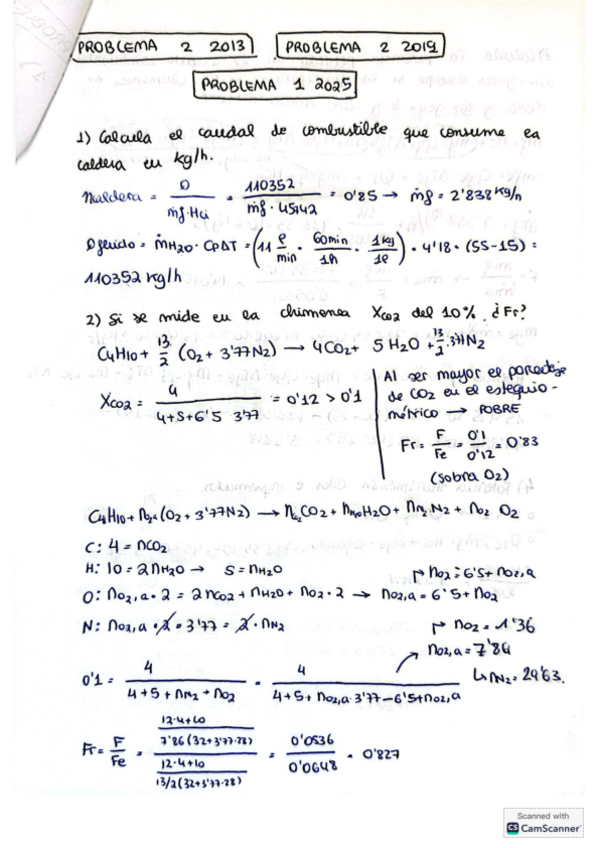 PROBLEMA 2 2013
PROBLEMA 2 2019
PROBLEMA 1 2025
1) Calcula el caudal de combustible que consume la
caldera en kg/h.
ηcaldera = Q / ṁf·Hci = 110352 / ṁf·45142 = 0'85 → ṁf = 2'838 kg/h
Qfluido = ṁH2O · CpΔT = (11 ℓ/min · 60min/1h · 1kg/1ℓ) · 4'18 · (55-15) =
110352 kg/h
2) Si se mide en la chimenea Xco2 del 10%. ¿Fr?
C4H10 + 13/2 (O2 + 3'77N2) → 4CO2 + 5H2O + 13/2 · 3'77N2
XCO2 = 4 / 4+5+6'5 3'77 = 0'12 > 0'1
Al ser mayor el porcentaje
de CO2 en el estequio-
métrico → POBRE
Fr = F/Fe = 0'1/0'12 = 0'83
(sobra O2)
C4H10 + nO2,a (O2 + 3'77N2) → nCO2 CO2 + nH2O H2O + nN2 N2 + nO2 O2
C: 4 = nCO2
H: 10 = 2nH2O → 5 = nH2O
nO2 = 6'5 + nO2,a
O: nO2,a · 2 = 2nCO2 + nH2O + nO2 · 2 → nO2,a = 6'5 + nO2
N: nO2,a · 2 · 3'77 = 2 · nN2
nO2 = 1'36
nO2,a = 7'86
nN2 = 29'63.
0'1 = 4 / 4+5+nN2+nO2 = 4 / 4+5+nO2,a 3'77-6'5+nO2,a
Fr = F/Fe = 12·4+10 / 7'86(32+3'77·28) / 12·4+10 / 13/2(32+3'77·28) = 0'0536 / 0'0648 = 0'827
Scanned with
CS CamScanner